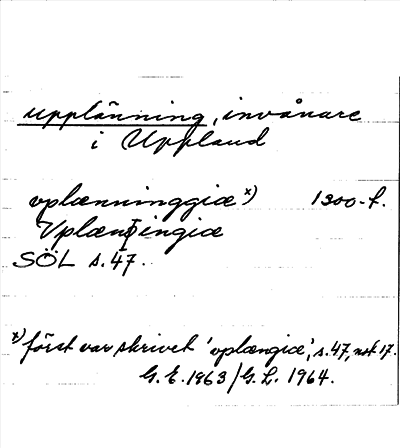 upplänning, invånare
i Uppland
vplænninggiæ x) 1300-t.
Vplænningiæ
SÖL s. 47.
x) först var skrivet 'vplængiæ', s. 47, not 17.
G. E. 1963/G. L. 1964.